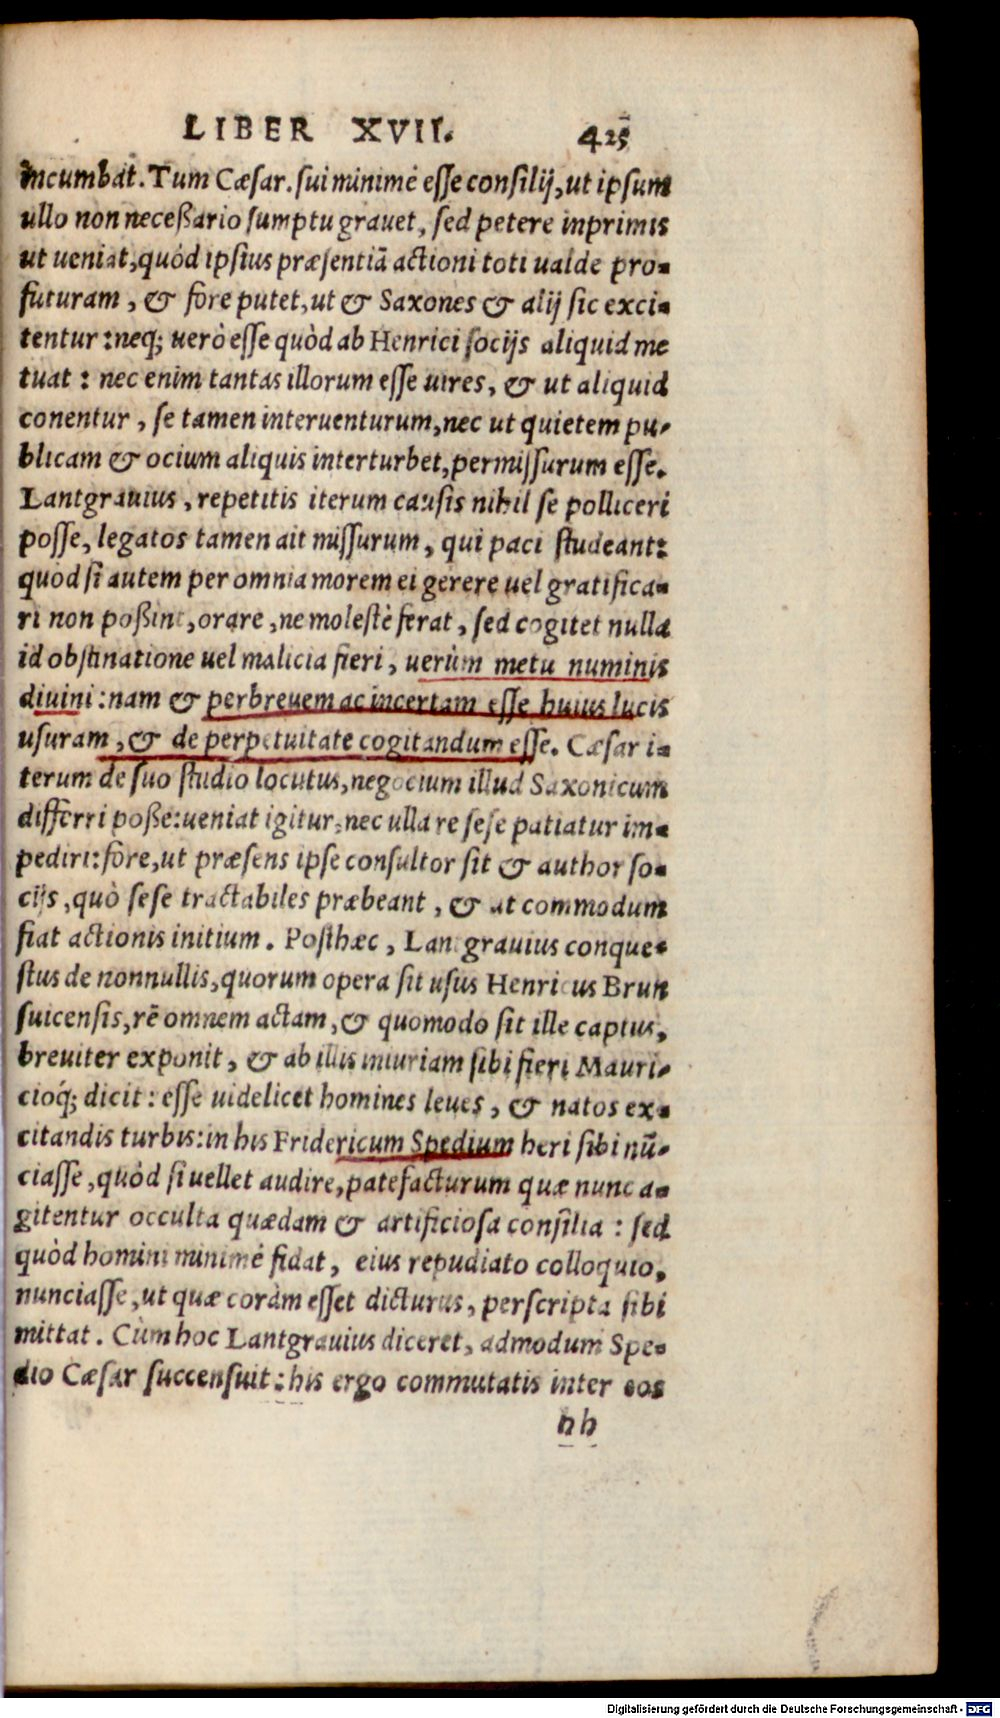 LIBER XVII. 425
incumbat. Tum Cæsar. sui minimè esse consilij, ut ipsum
ullo non neceßario sumptu grauet, sed petere inprimis
ut ueniat, quòd ipsius præsentiã actioni toti ualde pro-
futuram, & fore putet, ut & Saxones & alij sic exci-
tentur: neq; uerò esse quòd ab Henrici socijs aliquid me
tuat: nec enim tantas illorum esse uires, & ut aliquid
conentur, se tamen interuenturum, nec ut quietem pu-
blicam & ocium aliquis interturbet, permissurum esse.
Lantgrauius, repetitis iterum causis nihil se polliceri
posse, legatos tamen ait missurum, qui paci studeant:
quod si autem per omnia morem ei gerere uel gratifica-
ri non poßint, orare, ne molestè ferat, sed cogitet nulla
id obstinatione uel malicia fieri, uerùm metu numinis
diuini: nam & perbreuem ac incertam esse huius lucis
usuram, & de perpetuitate cogitandum esse. Cæsar i-
terum de suo studio locutus, negocium illud Saxonicum
differri poße: ueniat igitur, nec ulla re sese patiatur im-
pediri: fore, ut præsens ipse consultor sit & author so-
cijs, quò sese tractabiles præbeant, & ut commodum
fiat actionis initium. Posthæc, Lantgrauius conque-
stus de nonnullis, quorum opera sit usus Henricus Brun
suicensis, rẽ omnem actam, & quomodo sit ille captus,
breuiter exponit, & ab illis iniuriam sibi fieri Mauri-
cioq́; dicit: esse uidelicet homines leues, & natos ex-
citandis turbis: in his Fridericum Spedium heri sibi nũ-
ciasse, quòd si uellet audire, patefacturum quæ nunc a-
gitentur occulta quædam & artificiosa consilia: sed
quòd homini minimè fidat, eius repudiato colloquio,
nunciasse, ut quæ coràm esset dicturus, perscripta sibi
mittat. Cùm hoc Lantgrauius diceret, admodum Spe-
dio Cæsar succensuit: his ergo commutatis inter eos
hh
Digitalisierung gefördert durch die Deutsche Forschungsgemeinschaft - DFG